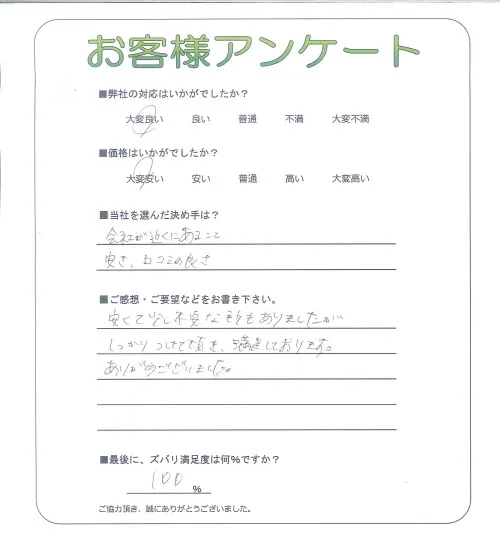 お客様アンケート
■弊社の対応はいかがでしたか？
大変良い 良い 普通 不満 大変不満
■価格はいかがでしたか？
大変安い 安い 普通 高い 大変高い
■当社を選んだ決め手は？
会社が近くにあること
安さ、口コミの良さ
■ご感想・ご要望などをお書き下さい。
安くて少し不安な所もありましたが
しっかりつけて頂き、満足しております。
ありがとうございました。
■最後に、ズバリ満足度は何％ですか？
100 %
ご協力頂き、誠にありがとうございました。